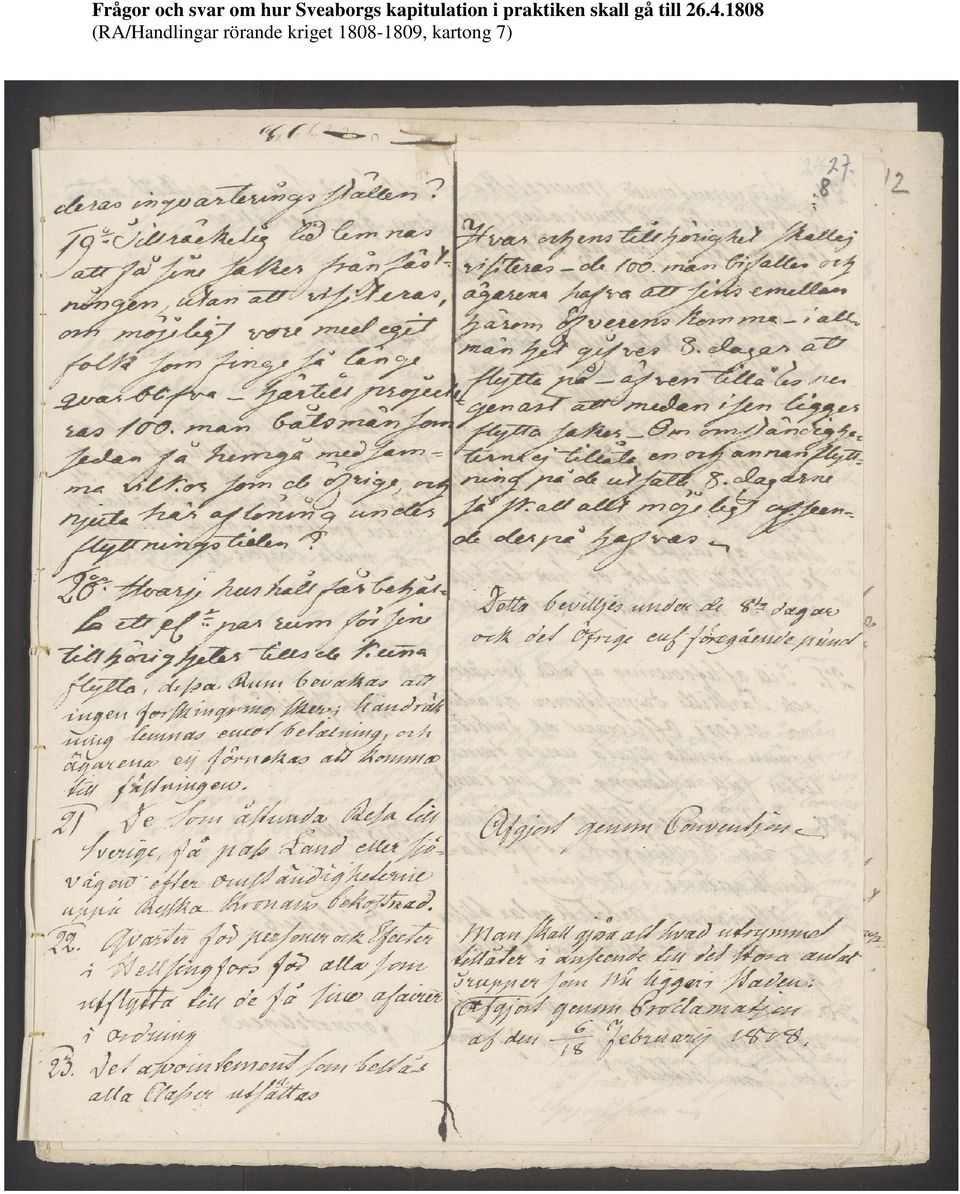 Frågor och svar om hur Sveaborgs kapitulation i praktiken skall gå till 26.4.1808
(RA/Handlingar rörande kriget 1808-1809, kartong 7)
27.
8
12
deras inqvarterings ställen?
19 Tillräckelig tid lemnas
att få sine saker från fäst-
ningen, utan att visiteras,
om möjeligt vore med eget
folck som finge så länge
qvarblifva – härtill projecte-
ras 100. man båtsmän som
sedan få hemgå med sam-
ma vilkor som de öfrige, och
njuta här aflöning under
flyttningstiden?
20 Hvarje hushåll får behål-
la ett el par rum för sine
tillhörigheter tills de kunna
flytta, dessa Rum bevakas att
ingen forskingring sker; handräck
ning lemnas emot betalning, och
ägarena ej förnekas att komma
till fästningen.
21 De som åstunda Resa till
Sverige, få pass Land eller sjö-
vägen efter omständigheterne
uppå Ryska Kronans bekostnad.
22. Qvarter för personer och Effecter
i Hellsingfors för alla som
utflytta till de få sine afairer
i ordning
23. Det apointement som bestås
alla Classer utsättas
Hvar och ens tillhörighet skall ej
visiteras – de 100. man bifalles och
ägarena hafva att sins emellan
härom öfverens komma – i all-
mänhet gifves 8. dagar att
flytta på – äfven tillåtes nu
genast att medan isen ligger
flytta saker – Om omständighe-
terna ej tillåta en och annan flytt-
ning på de utsatte 8. dagarne
så skall allt möjeligt afseen-
de derpå hafvas
Detta bevilljes under de 8 dagar
och det öfrige enl föregående punct
Afgjort genom Convention
Man skall göra allt hvad utrymmet
tillåter i anseende till det stora antal
trupper som nu ligger i staden:
Afgjort genom Proclamation
af den 6/18 Februarij 1808.